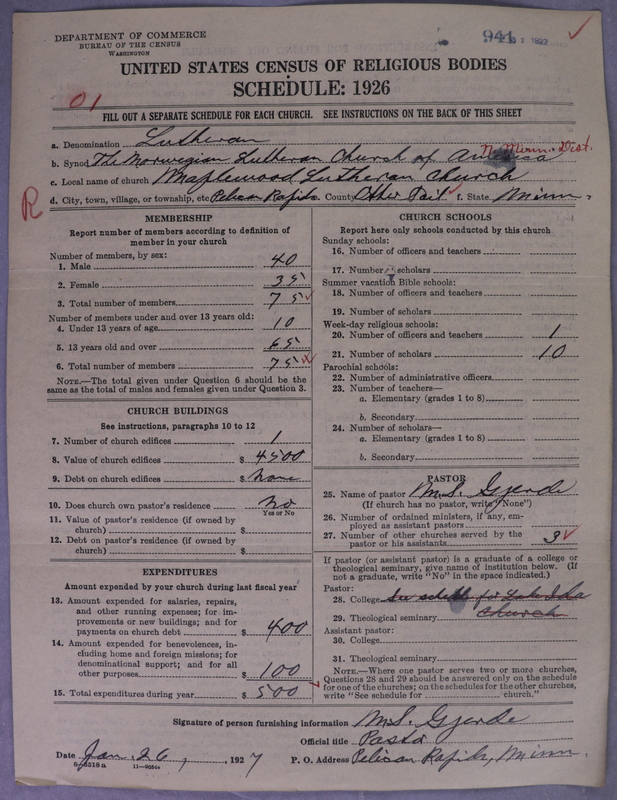 DEPARTMENT OF COMMERCE
BUREAU OF THE CENSUS
WASHINGTON
941
UNITED STATES CENSUS OF RELIGIOUS BODIES
SCHEDULE: 1926
01
FILL OUT A SEPARATE SCHEDULE FOR EACH CHURCH. SEE INSTRUCTIONS ON THE BACK OF THIS SHEET
a. Denomination Lutheran
N. Minn. Dist.
b. Synod The Norwegian Lutheran Church of America
c. Local name of church Maplewood Lutheran Church
R
d. City, town, village, or township, etc Pelican Rapids County Otter Tail f. State Minn.
MEMBERSHIP
Report number of members according to definition of
member in your church
Number of members, by sex:
1. Male 40
2. Female 35
3. Total number of members 75
Number of members under and over 13 years old:
4. Under 13 years of age 10
5. 13 years old and over 65
6. Total number of members 75
NOTE.—The total given under Question 6 should be the
same as the total of males and females given under Question 3.
CHURCH BUILDINGS
See instructions, paragraphs 10 to 12
7. Number of church edifices 1
8. Value of church edifices $ 4500
9. Debt on church edifices $ None
10. Does church own pastor's residence No
Yes or No
11. Value of pastor's residence (if owned by
church) $
12. Debt on pastor's residence (if owned by
church) $
EXPENDITURES
Amount expended by your church during last fiscal year
13. Amount expended for salaries, repairs,
and other running expenses; for im-
provements or new buildings; and for
payments on church debt $ 400
14. Amount expended for benevolences, in-
cluding home and foreign missions; for
denominational support; and for all
other purposes $ 100
15. Total expenditures during year $ 500
CHURCH SCHOOLS
Report here only schools conducted by this church
Sunday schools:
16. Number of officers and teachers
17. Number of scholars
Summer vacation Bible schools:
18. Number of officers and teachers
19. Number of scholars
Week-day religious schools:
20. Number of officers and teachers 1
21. Number of scholars 10
Parochial schools:
22. Number of administrative officers
23. Number of teachers—
a. Elementary (grades 1 to 8)
b. Secondary
24. Number of scholars—
a. Elementary (grades 1 to 8)
b. Secondary
PASTOR
25. Name of pastor M. S. Gjerde
(If church has no pastor, write "None")
26. Number of ordained ministers, if any, em-
ployed as assistant pastors
27. Number of other churches served by the
pastor or his assistants 3
If pastor (or assistant pastor) is a graduate of a college or
theological seminary, give name of institution below. (If
not a graduate, write "No" in the space indicated.)
Pastor:
28. College See schedule for Lake
29. Theological seminary Church
Assistant pastor:
30. College
31. Theological seminary
NOTE.—Where one pastor serves two or more churches,
Questions 28 and 29 should be answered only on the schedule
for one of the churches; on the schedules for the other churches,
write "See schedule for church."
Signature of person furnishing information M. S. Gjerde
Official title Pastor
Date Jan. 26, 1927 P. O. Address Pelican Rapids, Minn.
8-5518a 11-9054a